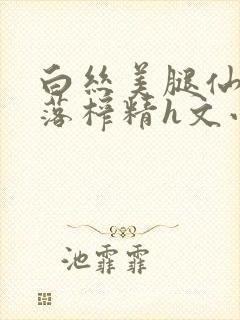 白丝美腿仙
落榨精h文小
池霏霏